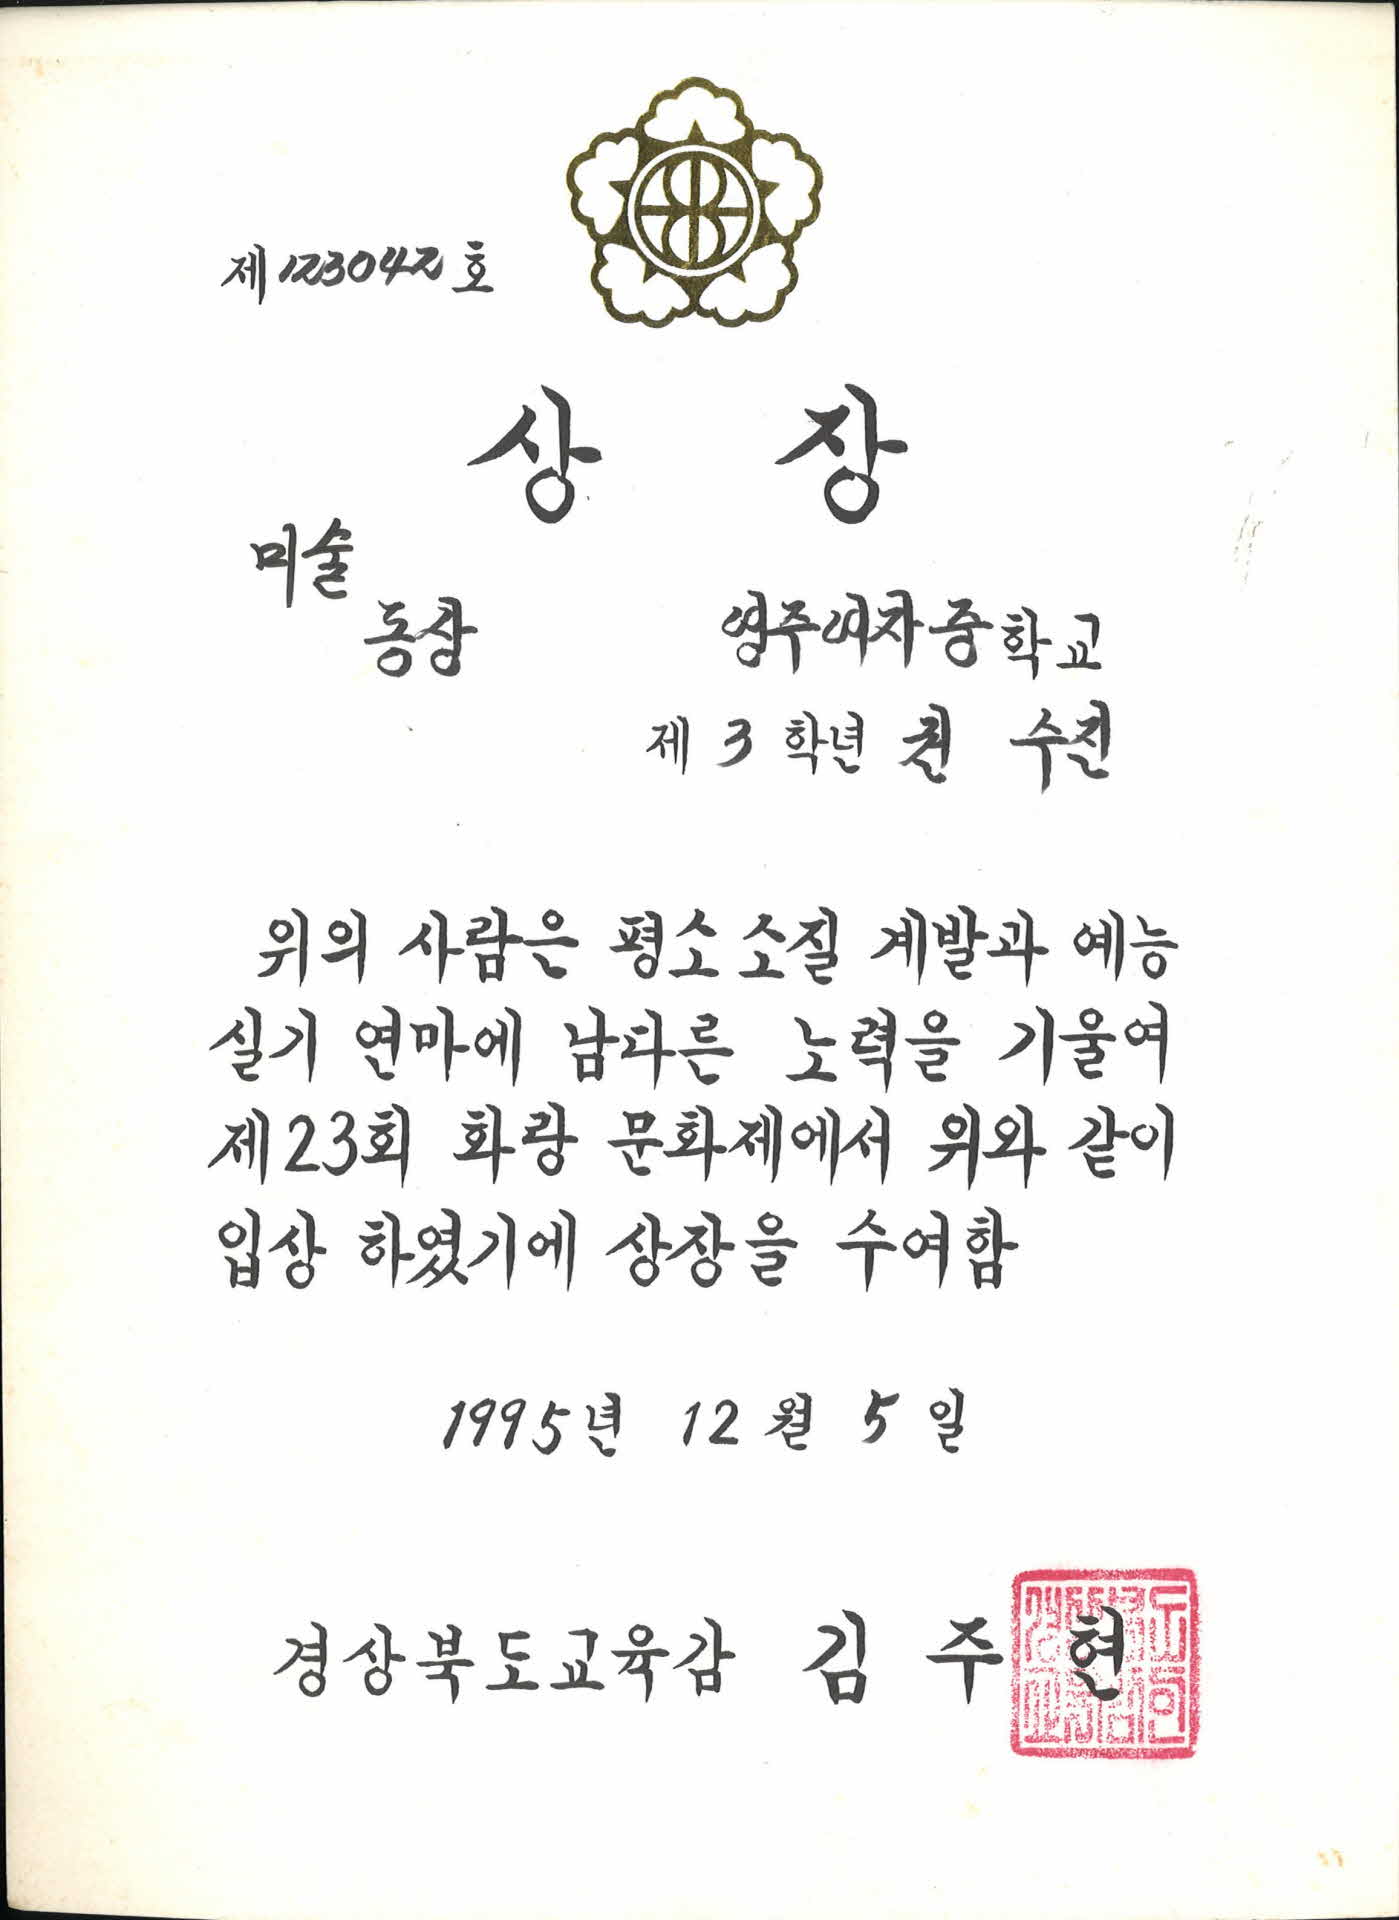 제 123042 호
상 장
미술
동상
영주여자중학교
제 3 학년 권 수진
위의 사람은 평소 소질 계발과 예능
실기 연마에 남다른 노력을 기울여
제23회 화랑 문화제에서 위와 같이
입상 하였기에 상장을 수여함
1995년 12월 5일
경상북도교육감 김 주 현